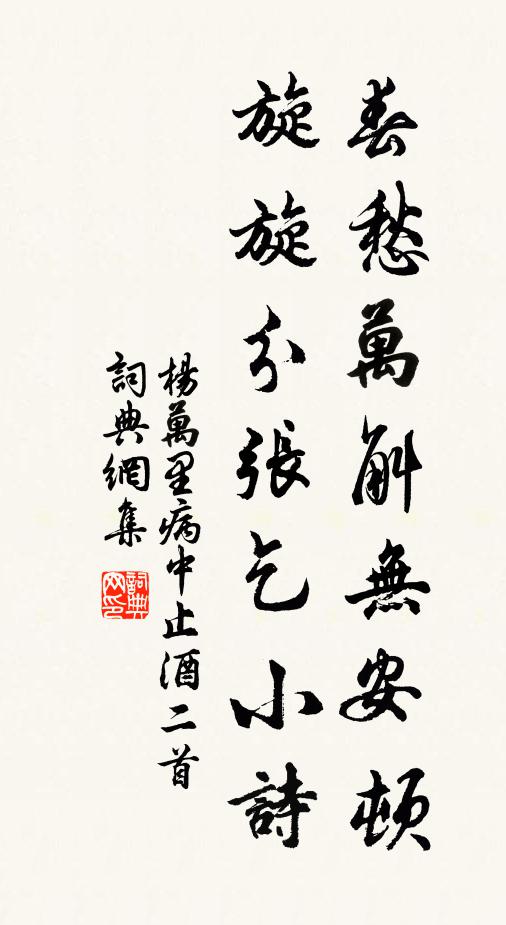 春愁萬斛無安頓
旋旋分張乞小詩
楊萬里病中止酒二首
詞典網集
詞典网印